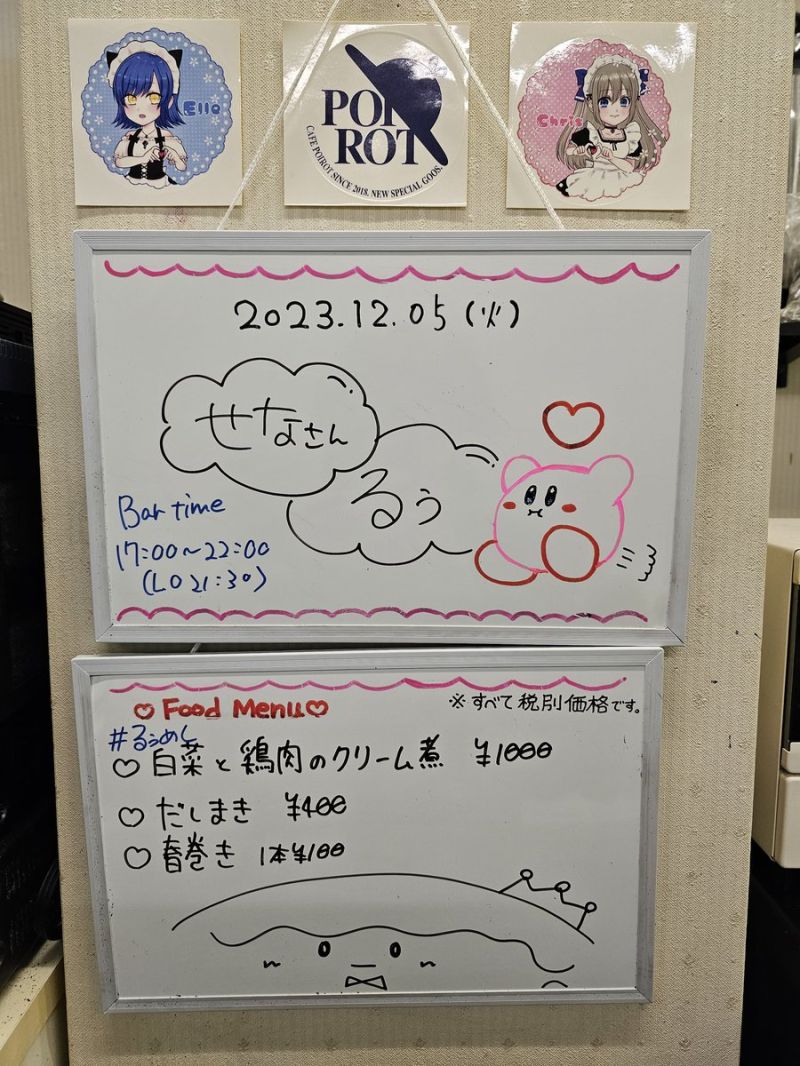 Ello
POIROT
CAFE POIROT SINCE 2018. NEW SPECIAL GOOS.
Chris
2023.12.05 (火)
せなさん
るぅ
Bar time
17:00~22:00
(LO 21:30)
♡ Food Menu♡
※すべて税別価格です。
#るぅめし
♡ 白菜と鶏肉のクリーム煮 ¥1000
♡ だしまき ¥400
♡ 春巻き 1本¥100